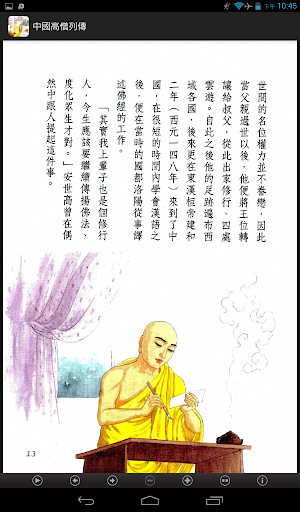 下午 10:45
中國高僧列傳
世間的名位權力並不眷戀，因此
當父親過世以後，他便將王位轉
讓給叔父，從此出家修行、四處
雲遊。自此之後他的足跡遍布西
域各國，後來更在東漢桓帝建和
二年（西元一四八年）來到了中
國，在很短的時間內學會漢語之
後，便在當時的國都洛陽從事譯
述佛經的工作。
「其實我上輩子也是個修行
人，今生應該要繼續傳揚佛法、
度化眾生才對。」安世高曾在偶
然中跟人提起這件事。
13